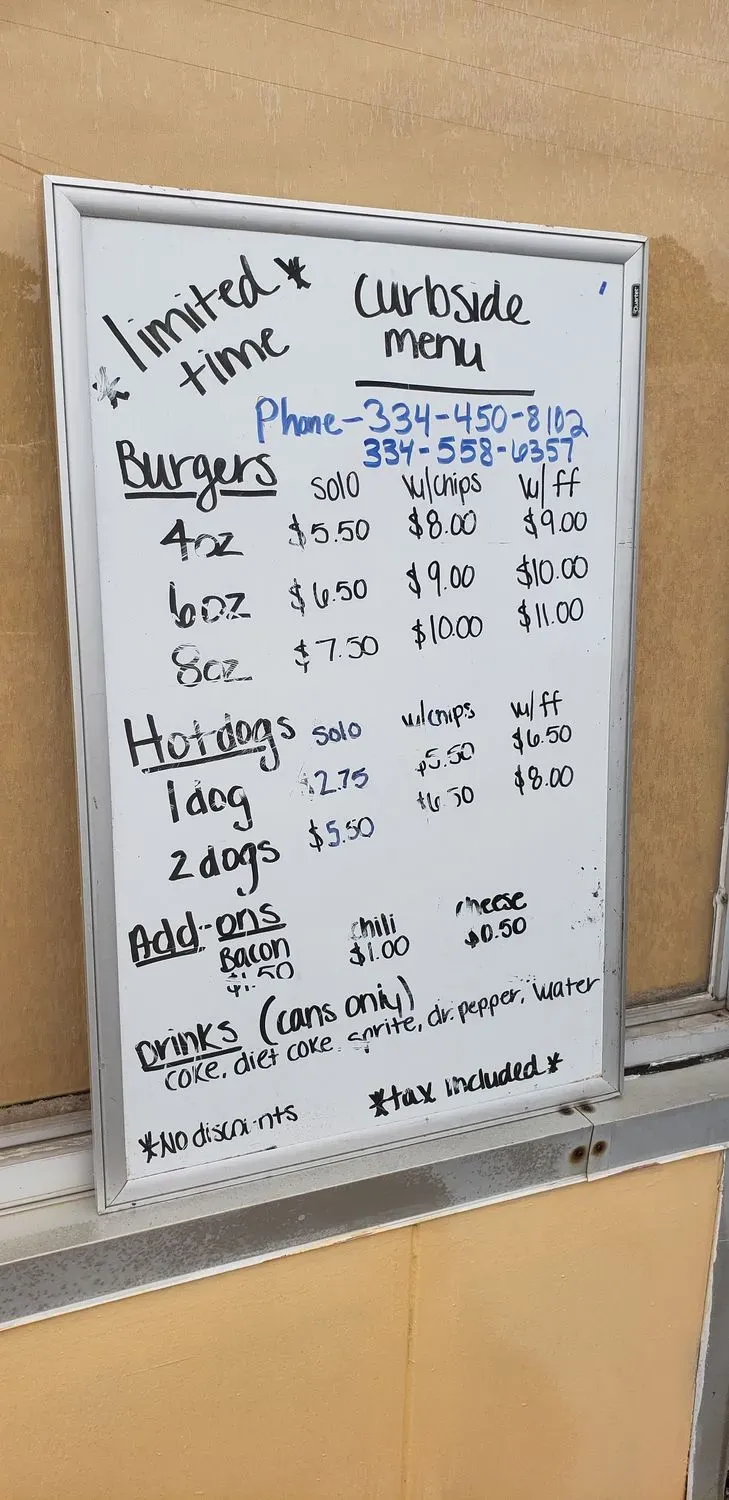 *limited* time
Curbside
menu
Phone-334-450-8102
334-558-6357
Burgers solo w/chips w/ff
4oz $5.50 $8.00 $9.00
6oz $6.50 $9.00 $10.00
8oz $7.50 $10.00 $11.00
Hotdogs solo w/chips w/ff
1 dog $2.75 $5.50 $6.50
2 dogs $5.50 $6.50 $8.00
Add-ons
Bacon chili cheese
$1.50 $1.00 $0.50
Drinks (cans only)
coke, diet coke, sprite, dr. pepper, water
*No discounts
*tax included*
Quartet